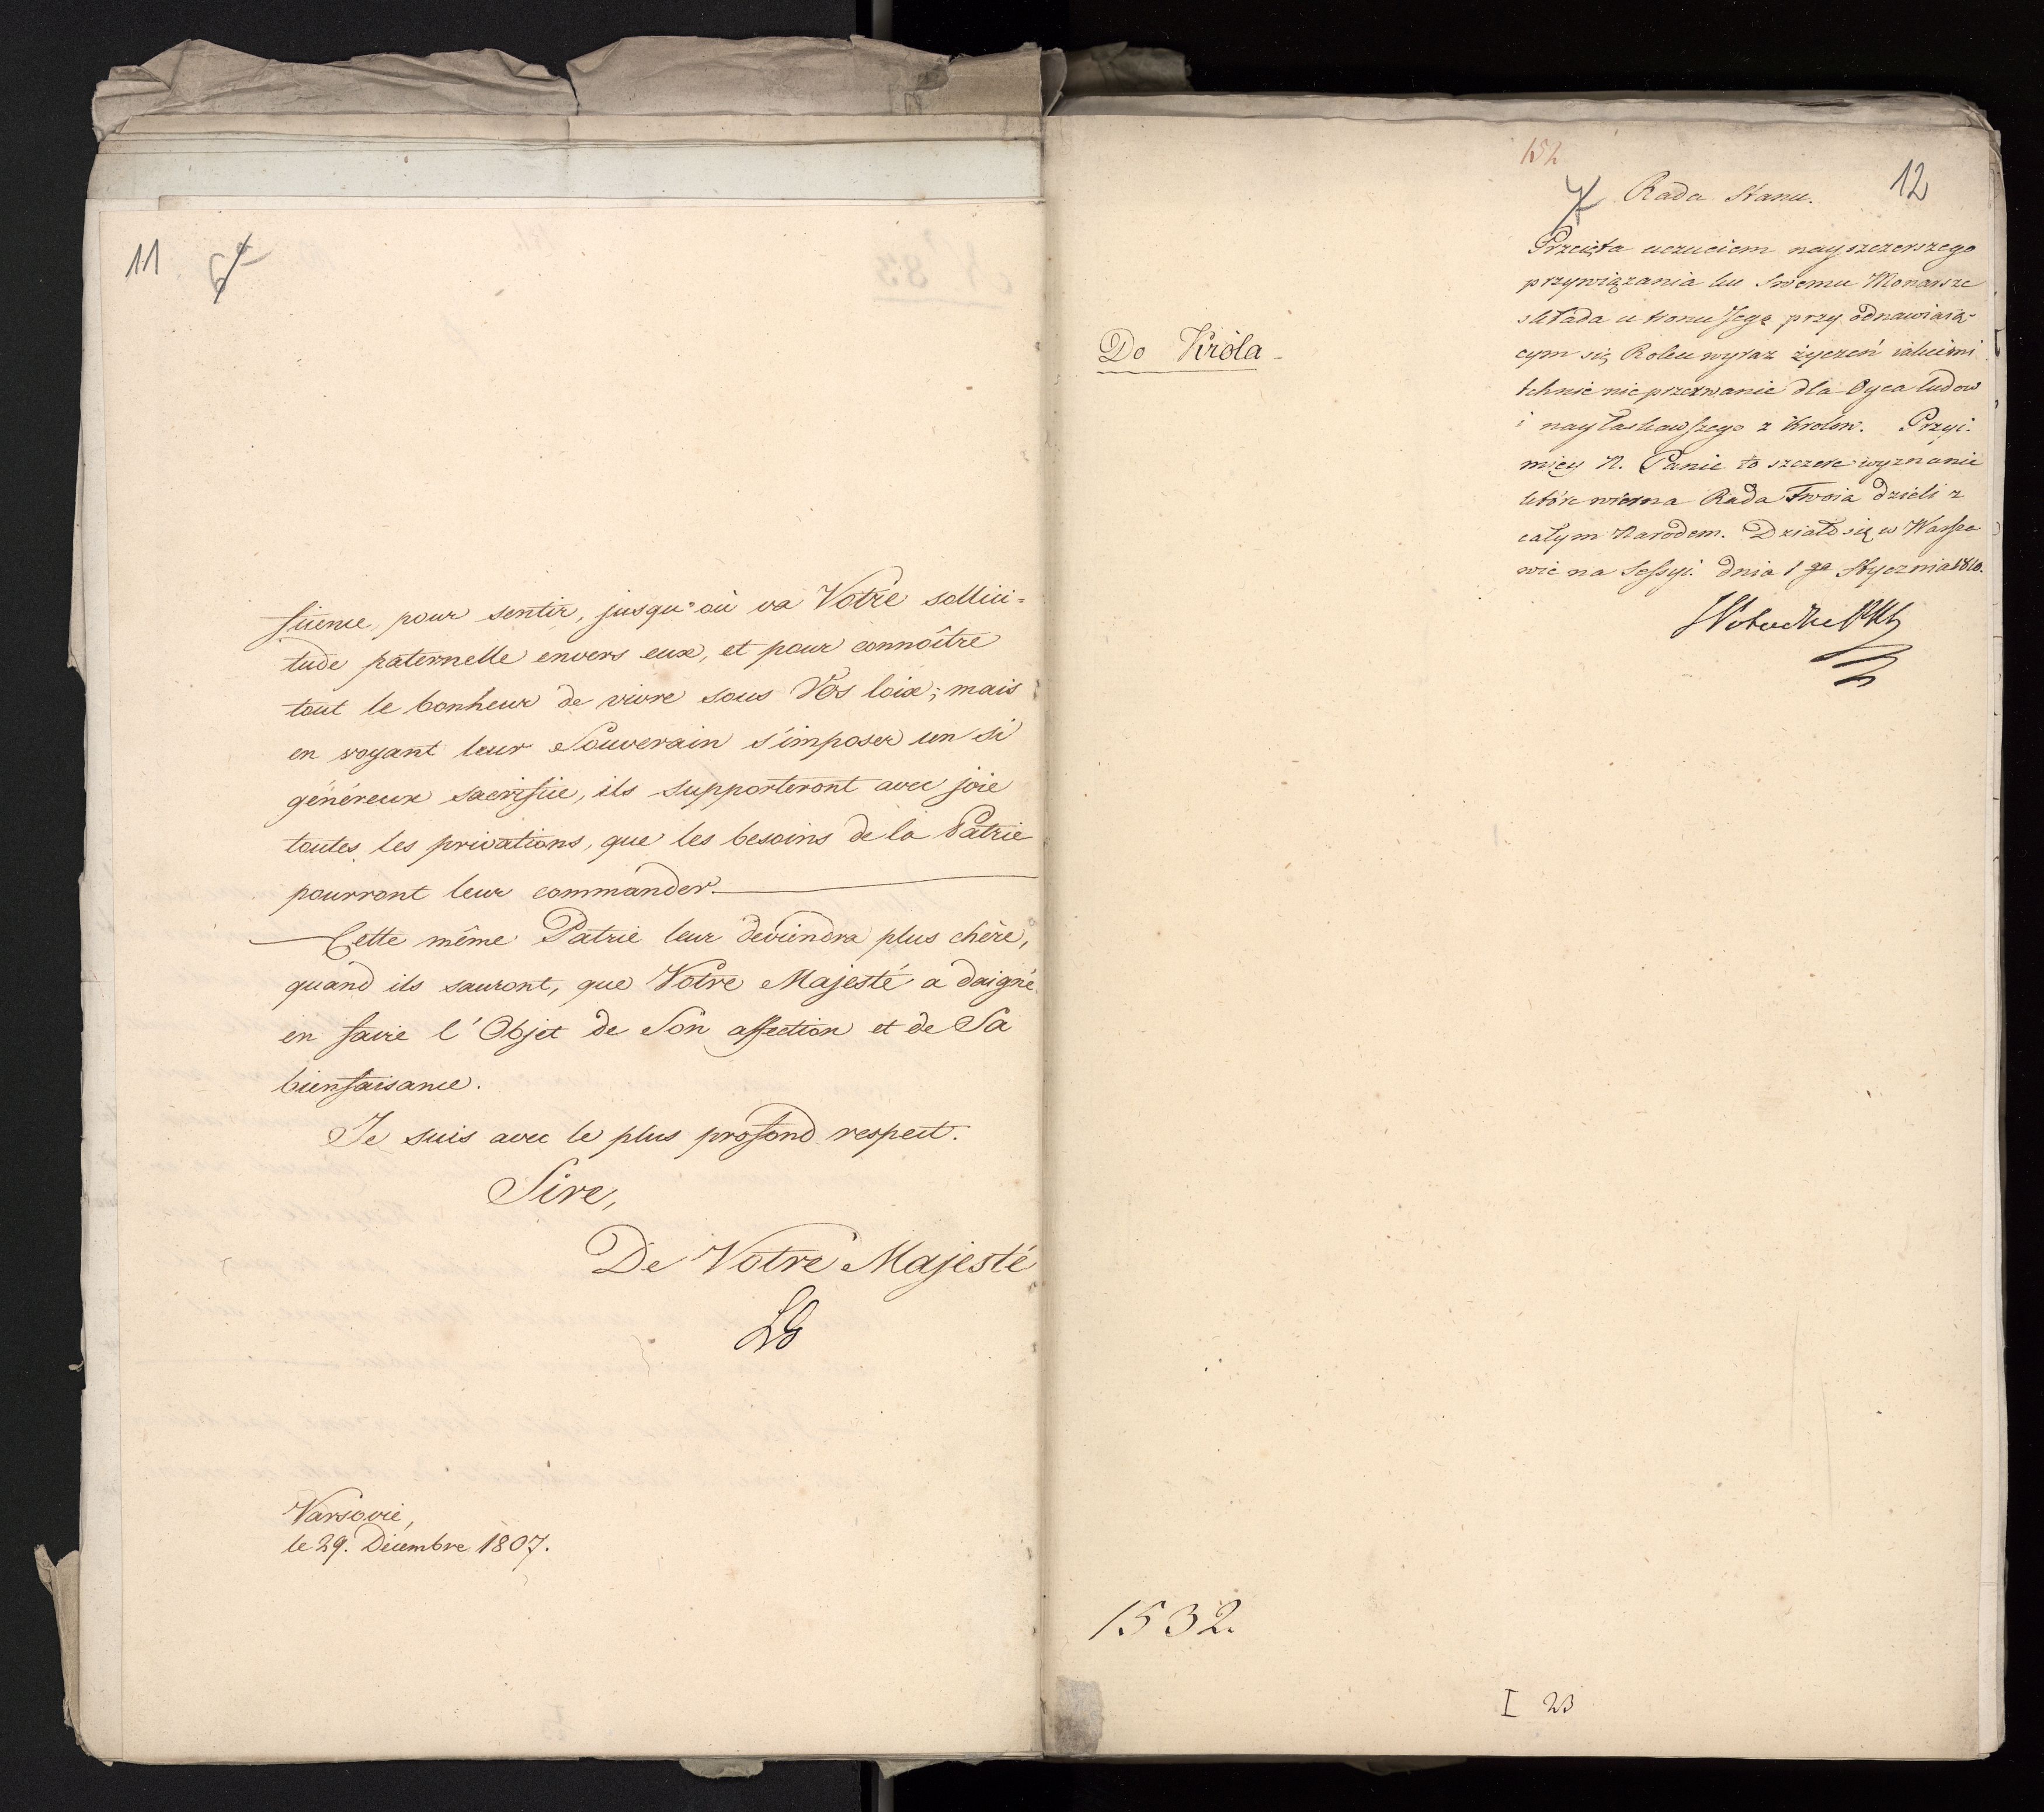 11
fiience, pour sentir, jusqu'où va Votre sollici=
tude paternelle envers eux, et pour connoître
tout le bonheur de vivre sous Vos loix; mais
en voyant leur Souverain s'imposer un si
généreux sacrifice, ils supporteront avec joie
toutes les privations, que les besoins de la Patrie
pourront leur commander.
Cette même Patrie leur deviendra plus chère,
quand ils sauront, que Votre Majesté a daigné
en faire l'Objet de Son affection et de Sa
bienfaisance.
Je suis avec le plus profond respect.
Sire,
De Votre Majesté
Varsovie,
le 29. Décembre 1807.
152
12
7
Rada Stanu.
Do Króla
Przeięta uczuciem nayszczerszego
przywiązania ku Swemu Monarsze
składa u tronu Jego przy odnawiaią-
cym się Roku wyraz życzeń iakiemi
tchnie nieprzerwanie dla Oyca ludow
i nayłaskawszego z Krolow. Przyi-
miey N. Panie to szczere wyznanie
które wierna Rada Twoia dzieli z
całym Narodem. Działo się w Warsza
wie na Sessyi dnia 1go Stycznia 1810.
1532.
I 23